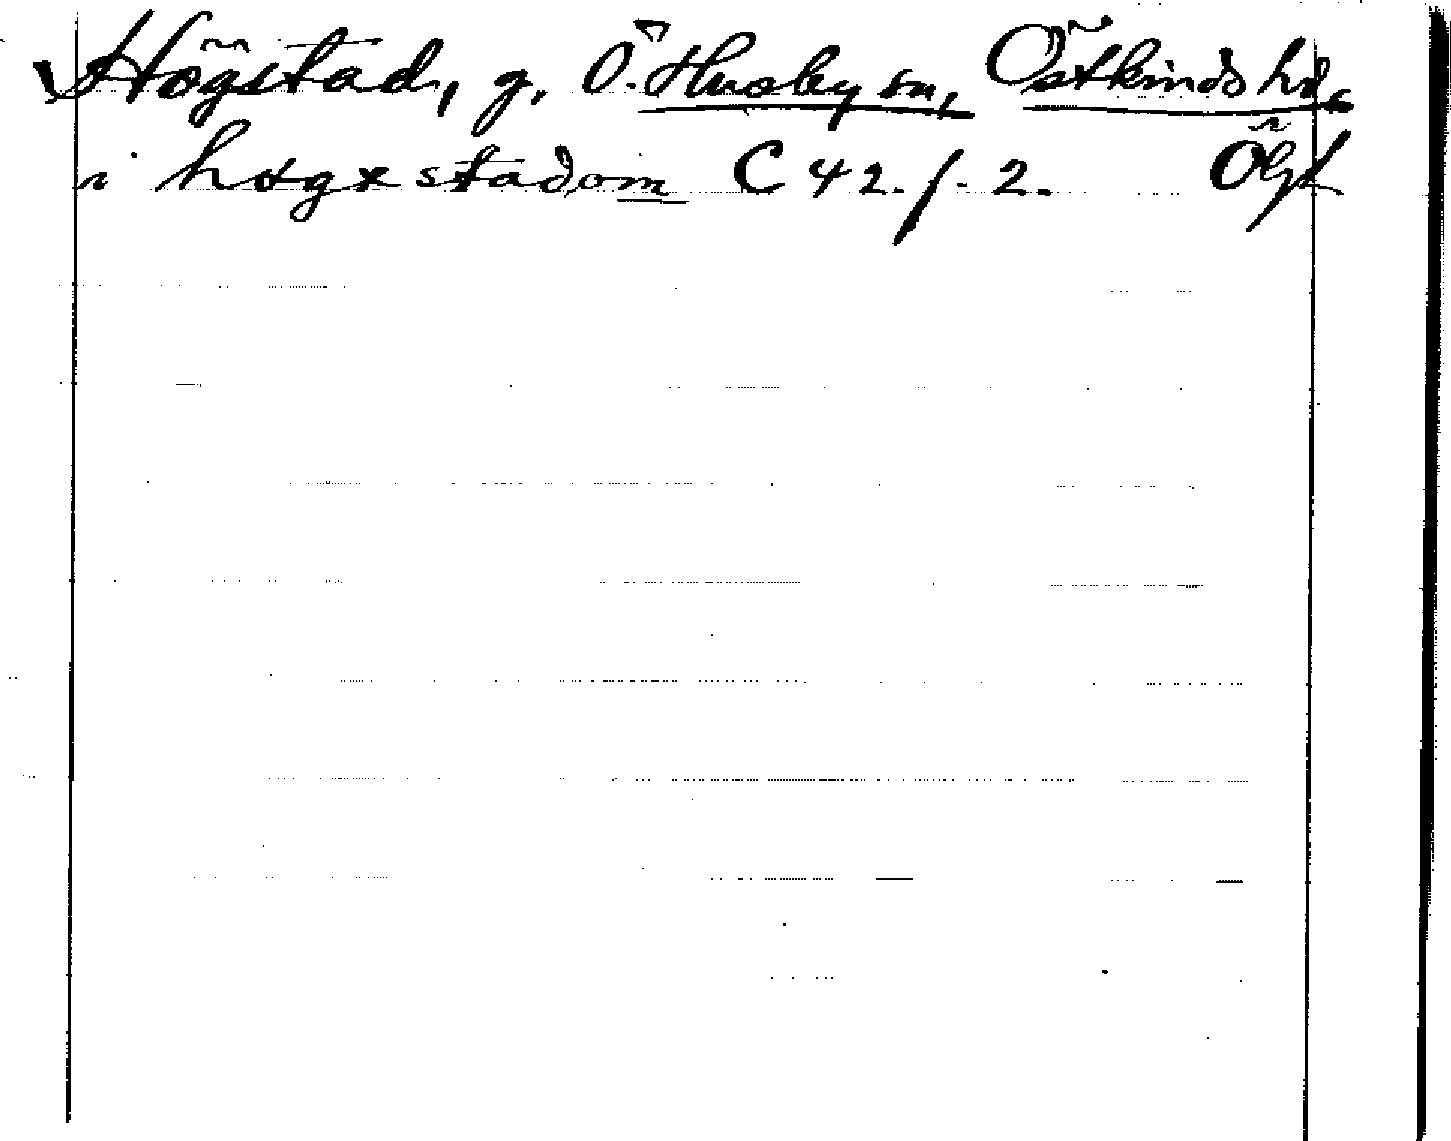 Högstad, g. Ö. Husby sn, Östkinds hd,
i høgxstadom C 42. /. 2. Ögl